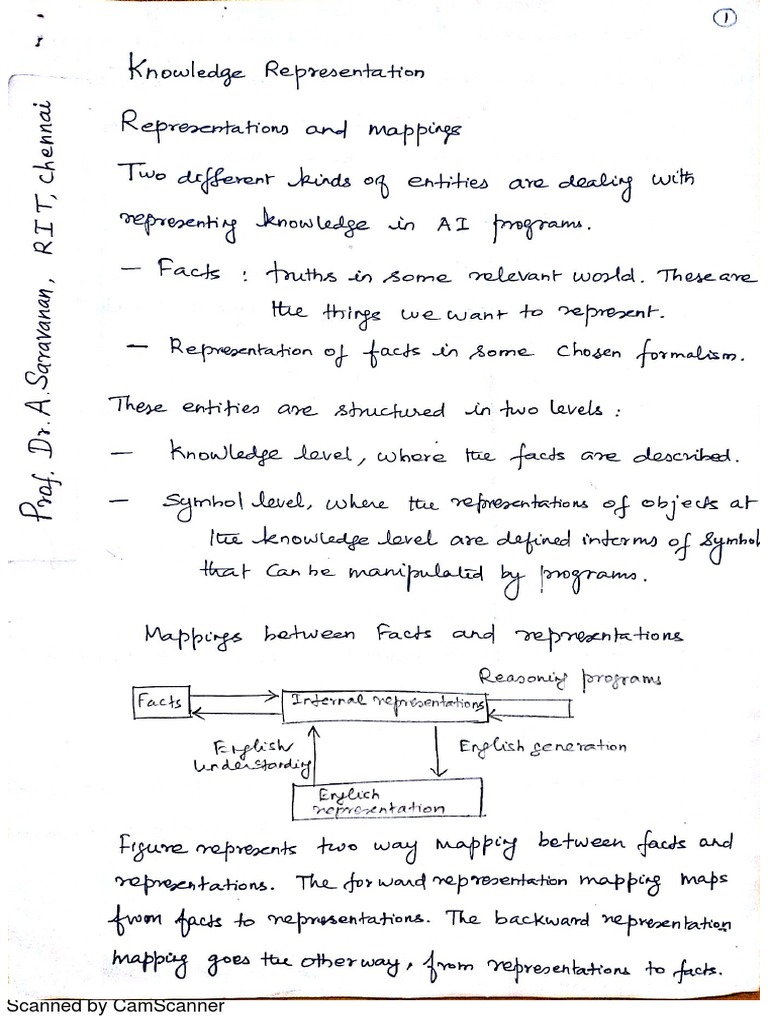 1
Prof. Dr. A. Saravanan, RIT, chennai
Knowledge Representation
Representations and mappings
Two different kinds of entities are dealing with
representing knowledge in AI programs.
— Facts : truths in some relevant world. These are
the things we want to represent.
— Representation of facts in some chosen formalism.
These entities are structured in two levels :
— Knowledge level, where the facts are described.
— Symbol level, where the representations of objects at
the knowledge level are defined interms of symbol
that can be manipulated by programs.
Mappings between Facts and representations
Reasoning programs
Facts
Internal representations
English
understanding
English generation
English
representation
Figure represents two way mapping between facts and
representations. The forward representation mapping maps
from facts to representations. The backward representation
mapping goes the other way, from representations to facts.
Scanned by CamScanner